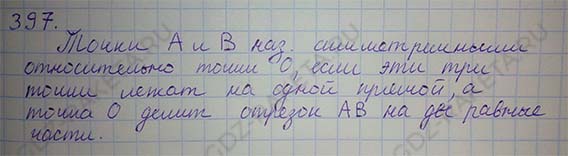 397.
Точки А и В наз. симметричными
относительно точки О, если эти три
точки лежат на одной прямой, а
точка О делит отрезок АВ на две равные
части.
GDZ-RAKETA.RU